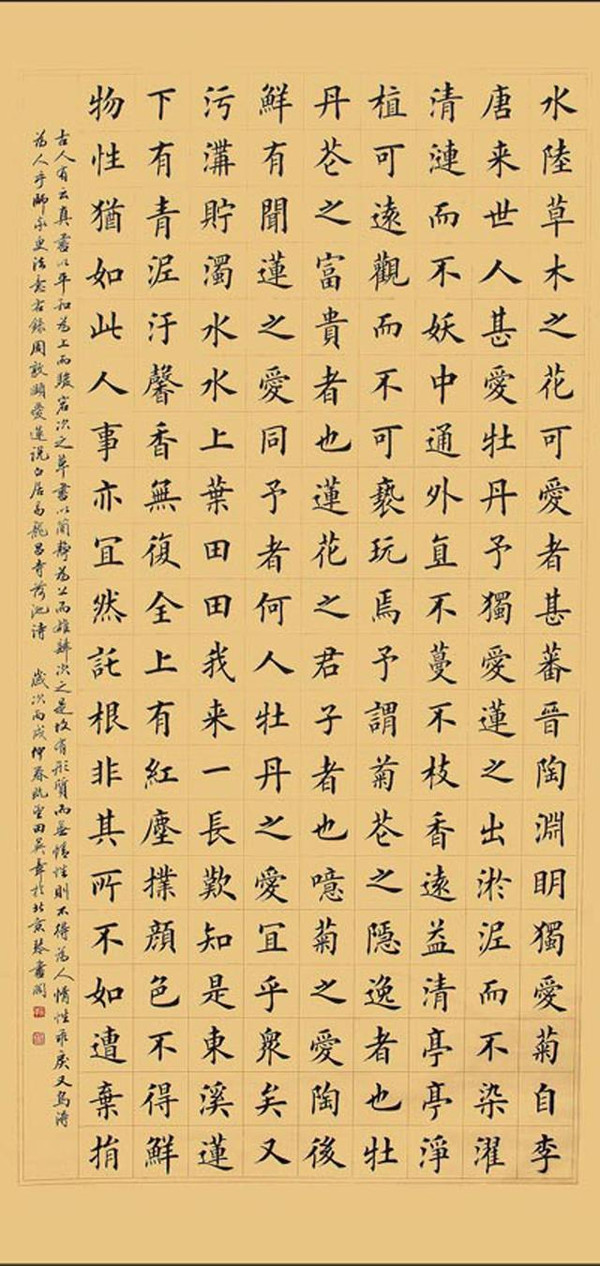 水陸草木之花可愛者甚蕃晉陶淵明獨愛菊自李
唐来世人甚愛牡丹予獨愛蓮之出淤泥而不染濯
清漣而不妖中通外直不蔓不枝香遠益清亭亭淨
植可遠觀而不可褻玩焉予謂菊花之隱逸者也牡
丹花之富貴者也蓮花之君子者也噫菊之愛陶後
鮮有聞蓮之愛同予者何人牡丹之愛宜乎衆矣又
污溝貯濁水水上葉田田我来一長歎知是東溪蓮
下有青泥汙馨香無復全上有紅塵撲顔色不得鮮
物性猶如此人事亦宜然託根非其所不如遭棄捐
古人有云真書以平和為上而駿宕次之草書以簡静為上而雄肆次之是故有形質而無情性則不得為人情性乖戾又烏得
為人乎右錄周敦頤愛蓮說白居易龍昌寺荷池詩 歲次丙戌仲春田英章於北京琴書閣